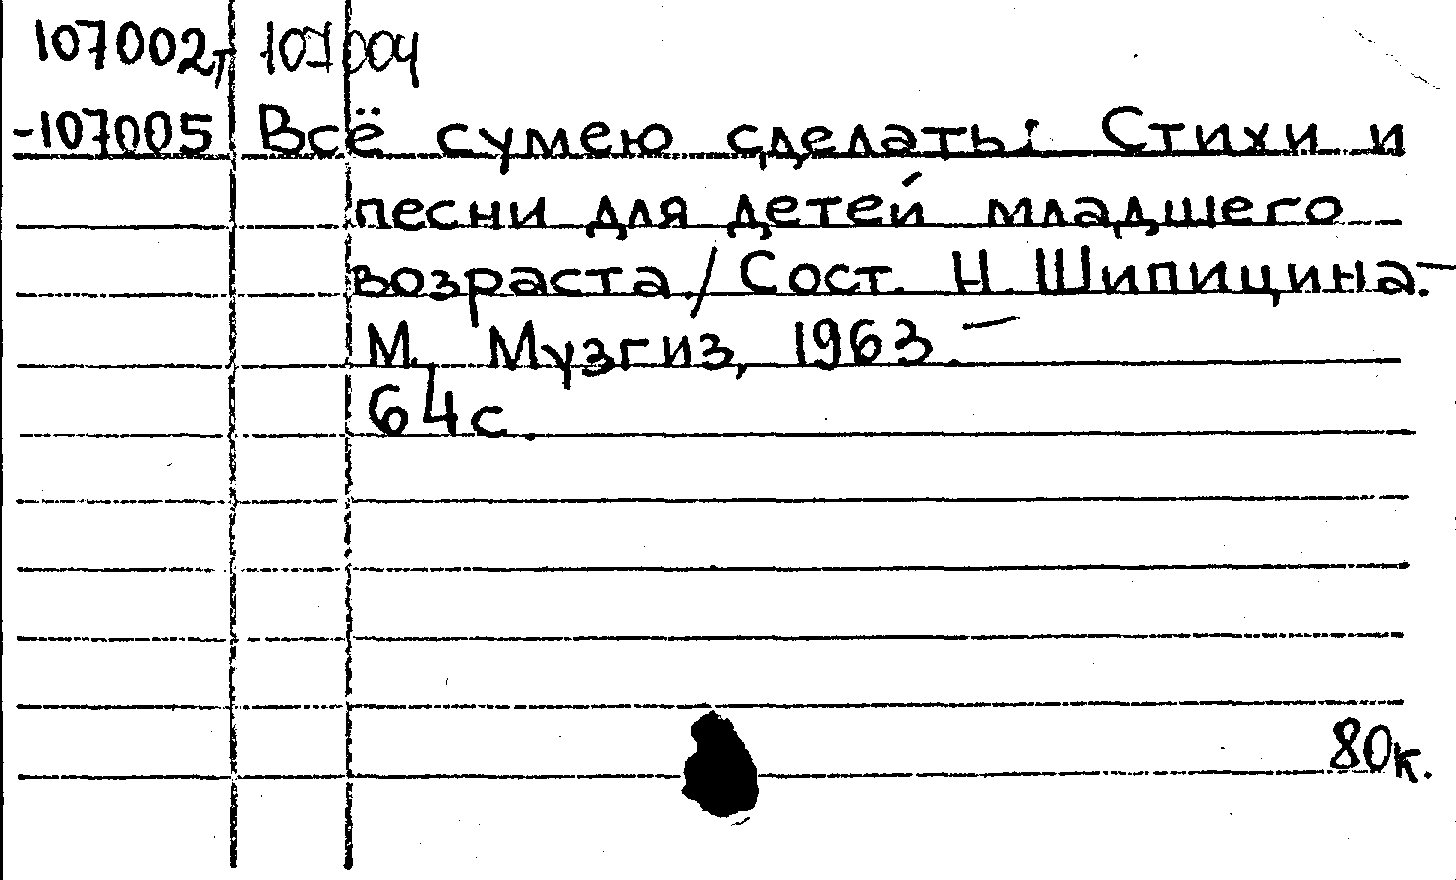 107002т 107004
-107005 Всё сумею сделать: Стихи и
песни для детей младшего
возраста./ Сост. Н. Шипицина.-
М. Музгиз, 1963.-
64с.
80к.